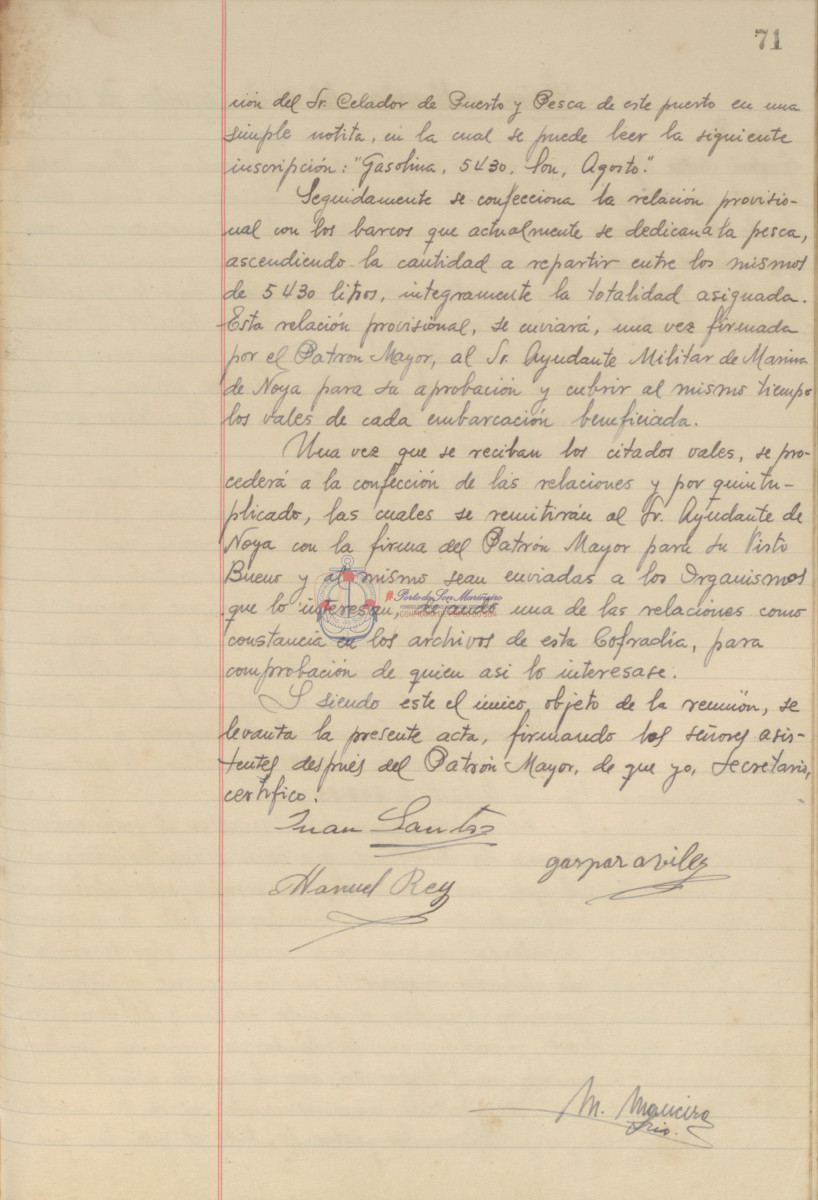 71
ción del Sr. Celador de Puerto y Pesca de este puerto en una
simple notita, en la cual se puede leer la siguiente
inscripción: "Gasolina, 5430, Son, Agosto."
Seguidamente se confecciona la relación provisio-
nal con los barcos que actualmente se dedican a la pesca,
ascendiendo la cantidad a repartir entre los mismos
de 5430 litros, integramente la totalidad asignada.
Esta relación provisional, se enviará, una vez firmada
por el Patron Mayor, al Sr. Ayudante Militar de Marina
de Noya para su aprobación y cubrir al mismo tiempo
los vales de cada embarcación beneficiada.
Una vez que se reciban los citados vales, se pro-
cederá a la confección de las relaciones y por quintu-
plicado, las cuales se remitirán al Sr. Ayudante de
Noya con la firma del Patrón Mayor para su Visto
Bueno y al mismo sean enviadas a los Organismos
que lo interesan, dejando una de las relaciones como
constancia en los archivos de esta Cofradía, para
comprobación de quien asi lo interesase.
Y siendo este el único objeto de la reunión, se
levanta la presente acta, firmando los señores asis-
tentes después del Patrón Mayor, de que yo, Secretario,
certifico.
Juan Santos
gaspar aviles
Manuel Rey
M. Maneiro
Srio.
Porto do Son Mariñeiro